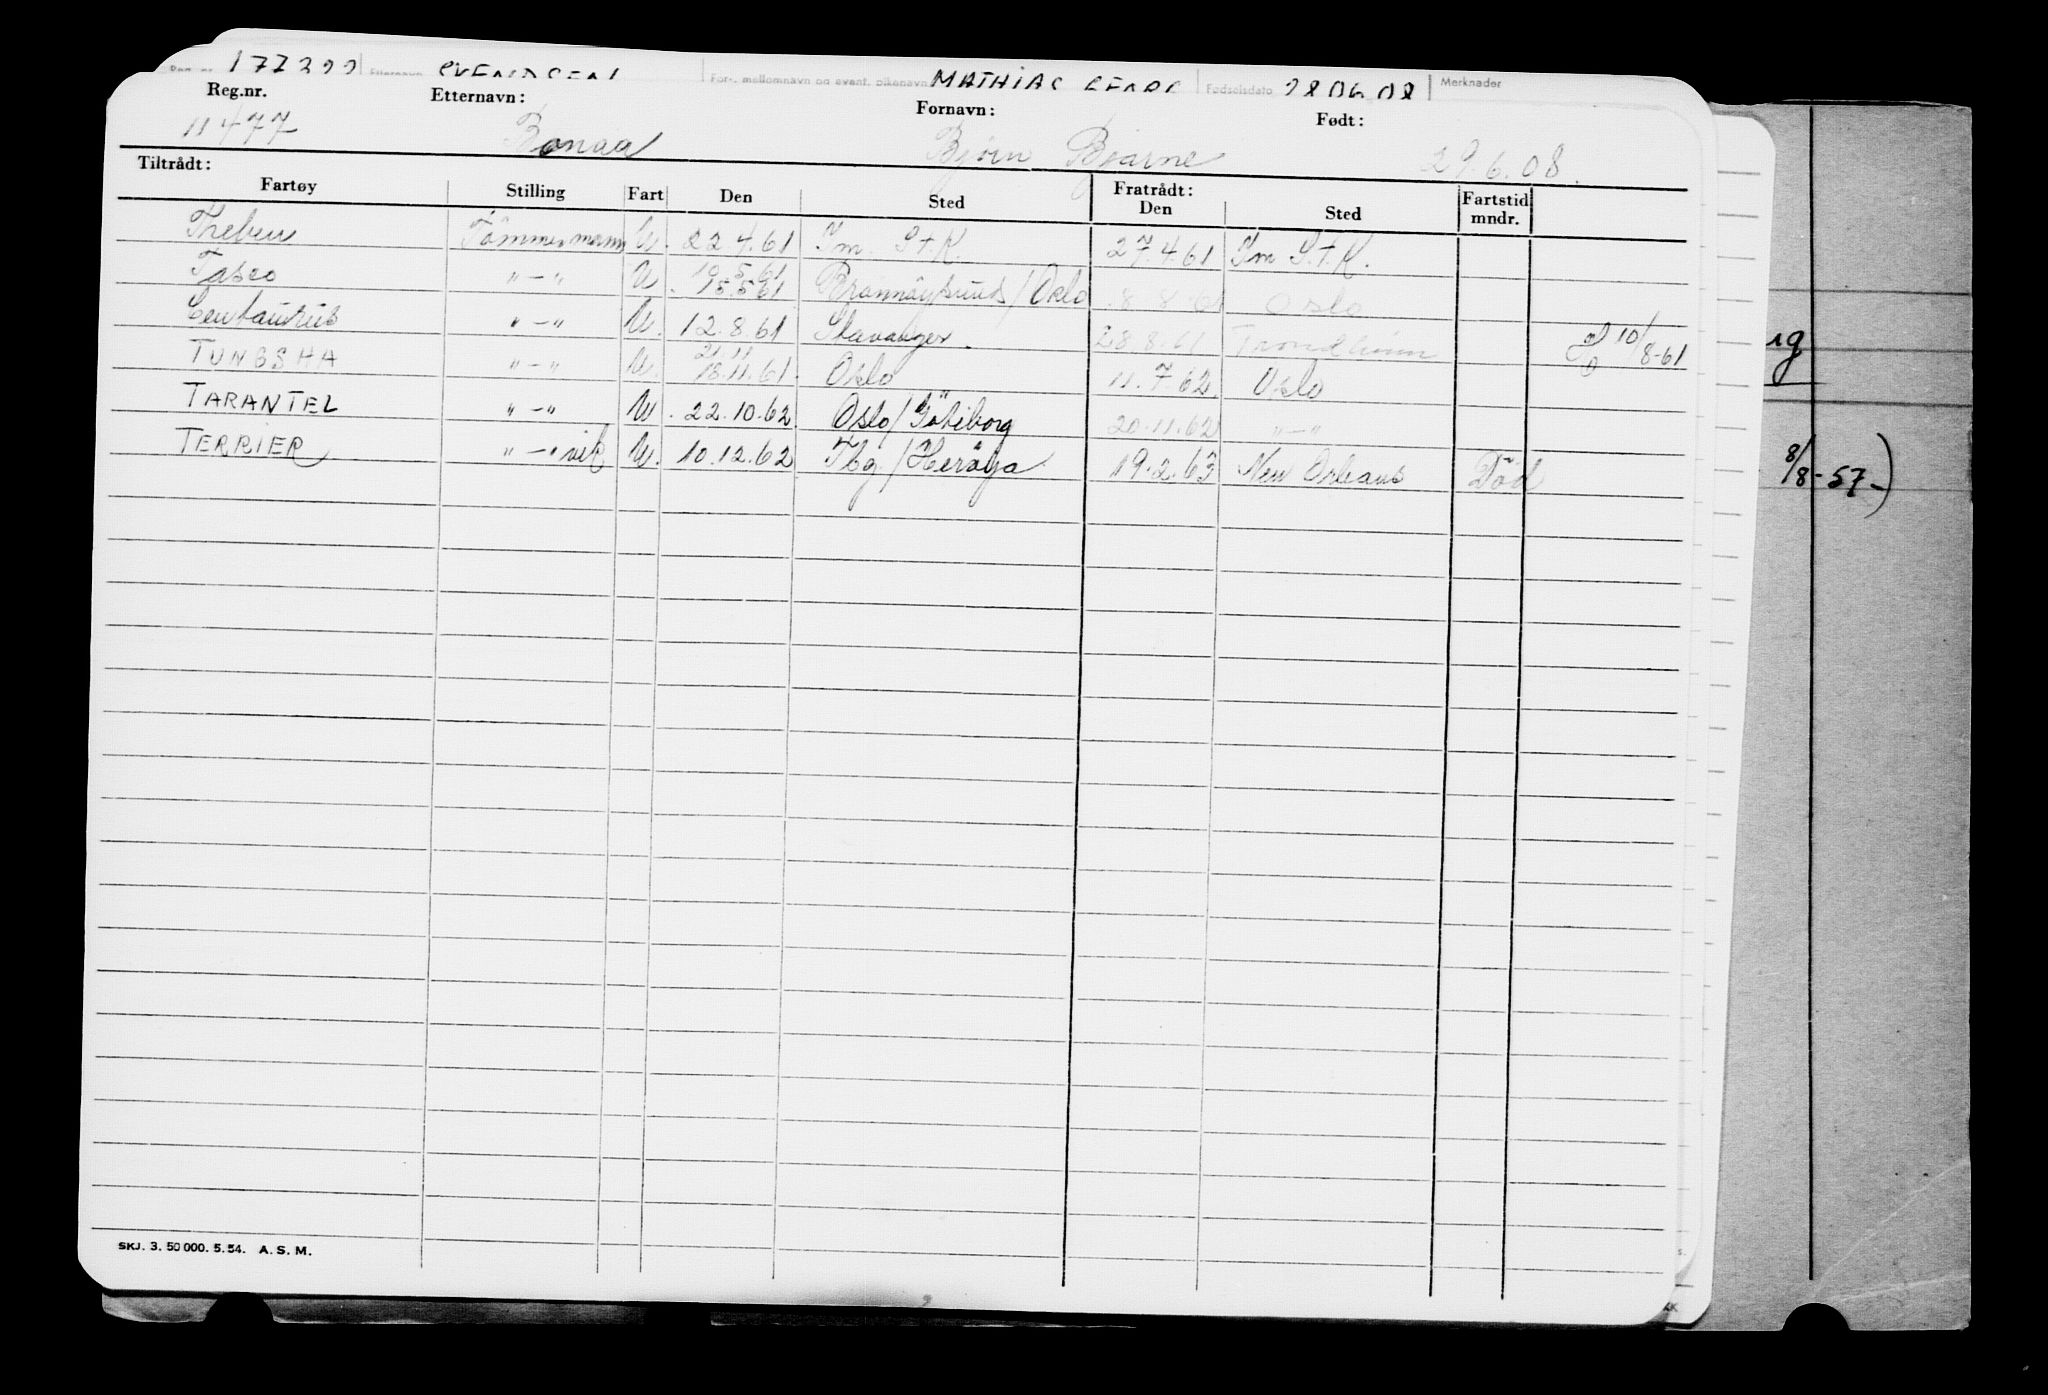 177399 SVENDSEN For-, mellomnavn og event. pikenavn MATHIAS GEORG Fødselsdato 28 06 08 Merknader
Reg.nr. Etternavn: Fornavn: Født:
11477 Bonaa Bjørn Bjarne 29.6.08.
Tiltrådt: Fratrådt:
Fartøy Stilling Fart Den Sted Den Sted Fartstid mndr.
Theben Tömmermann U. 22.4.61 Im. S+K. 27.4.61 Im S.+K.
Tasco "-" U. 10.5.61 15.5.61 Brönnöysund/Oslo 8.8.61 Oslo
Centaurus "-" U. 12.8.61 Stavanger. 28.8.61 Trondheim 10/8-61
TUNGSHA "-" U. 21.11 18.11.61. Oslo 11.7.62. Oslo
TARANTEL "-" U. 22.10.62 Oslo/Göteborg 20.11.62 "-"
TERRIER "-" vik U. 10.12.62 Tbg./Heröya 19.2.63 New Orleans Död
8/8-57-)
SKJ. 3. 50 000. 5. 54. A. S. M.